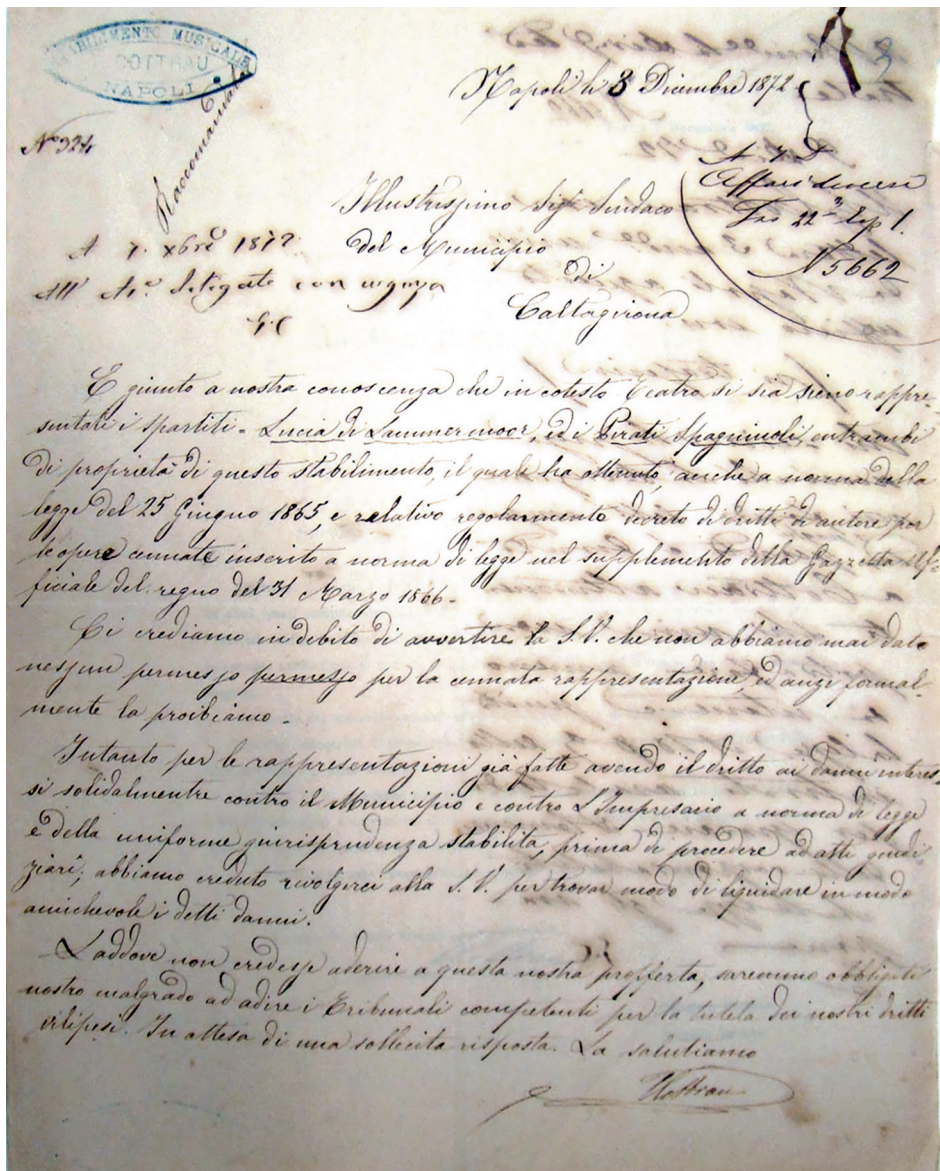 STABILIMENTO MUSICALE
COTTRAU
NAPOLI
Raccomandata
Napoli li 3 Dicembre 1872
No 324
A 7 D
Affari diversi
Fas 22 Esp 1.
N 5662
Illustrissimo Sigr Sindaco
del Municipio
di
Caltagirona
A 7. xbre 1872
All' Delegato con urgenza
E giunto a nostra conoscenza che in cotesto Teatro si sia sieno rappre-
sentati i spartiti - Lucia di Lammermoor, ed i Pirati Spagnuoli, entrambi
di proprietà di questo stabilimento, il quale ha ottenuto, anche a norma della
legge del 25 Giugno 1865, e relativo regolamento decreto di dritti di autore per
le opere cennate inscrito a norma di legge nel supplemento della Gazzetta Uf-
ficiale del regno del 31 Marzo 1866 -
Ci crediamo in debito di avvertire la S.V. che non abbiamo mai dato
nessun permesso permesso per la cennata rappresentazione, ed anzi formal-
mente la proibiamo -
Intanto per le rappresentazioni già fatte avendo il dritto ai danni interes-
si solidalmentre contro il Municipio e contro L'Impresario a norma di legge
e della uniforme guirisprudenza stabilita, prima di procedere ad atti giudi
ziari; abbiamo creduto rivolgerci alla S.V. per trovar modo di liquidare in modo
amichevole i detti danni.
Laddove non credesse aderire a questa nostra profferta, saremmo obbligati
nostro malgrado ad adire i Tribunali competenti per la tutela dei nostri dritti
vilipesi. In attesa di una sollecita risposta. La salutiamo
Cottrau